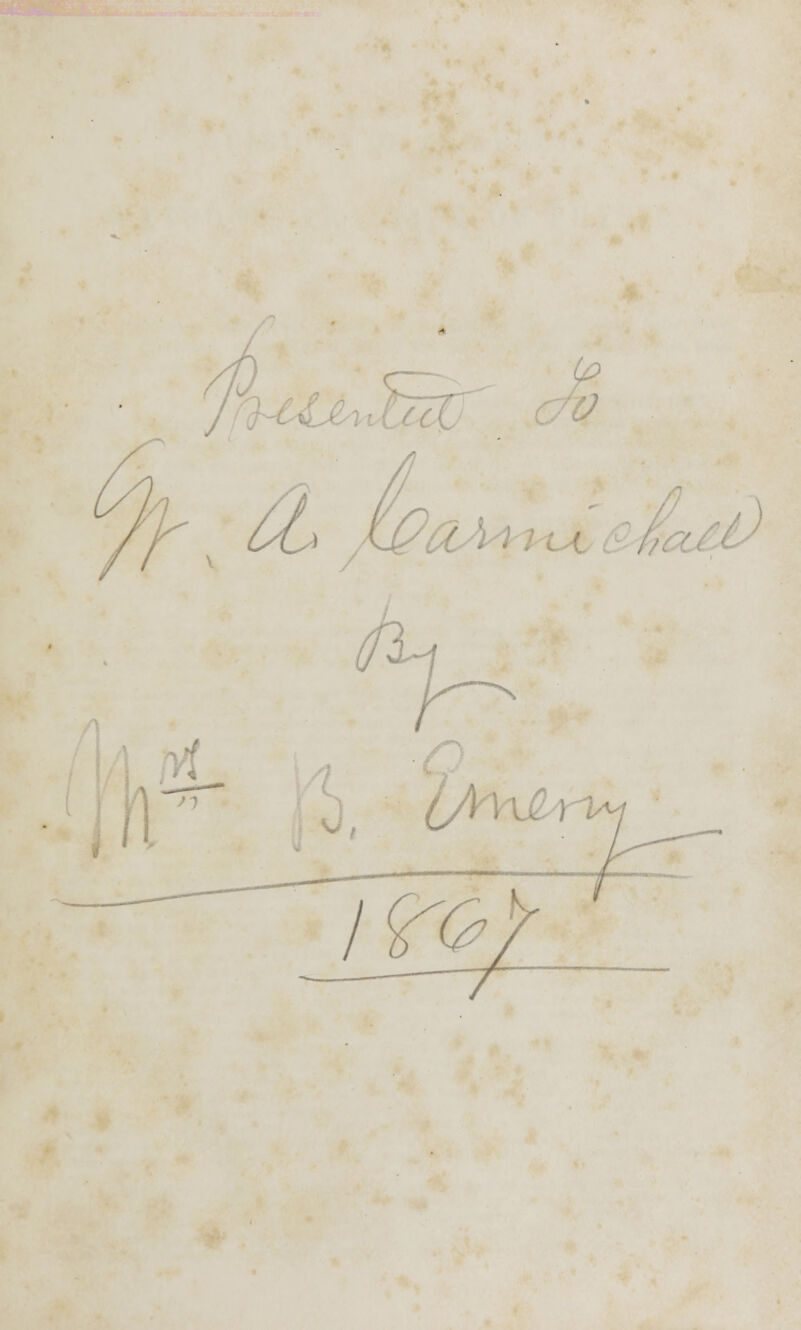 Presented To
W. A. Carmichael
By
Mrs B. Emery
1867